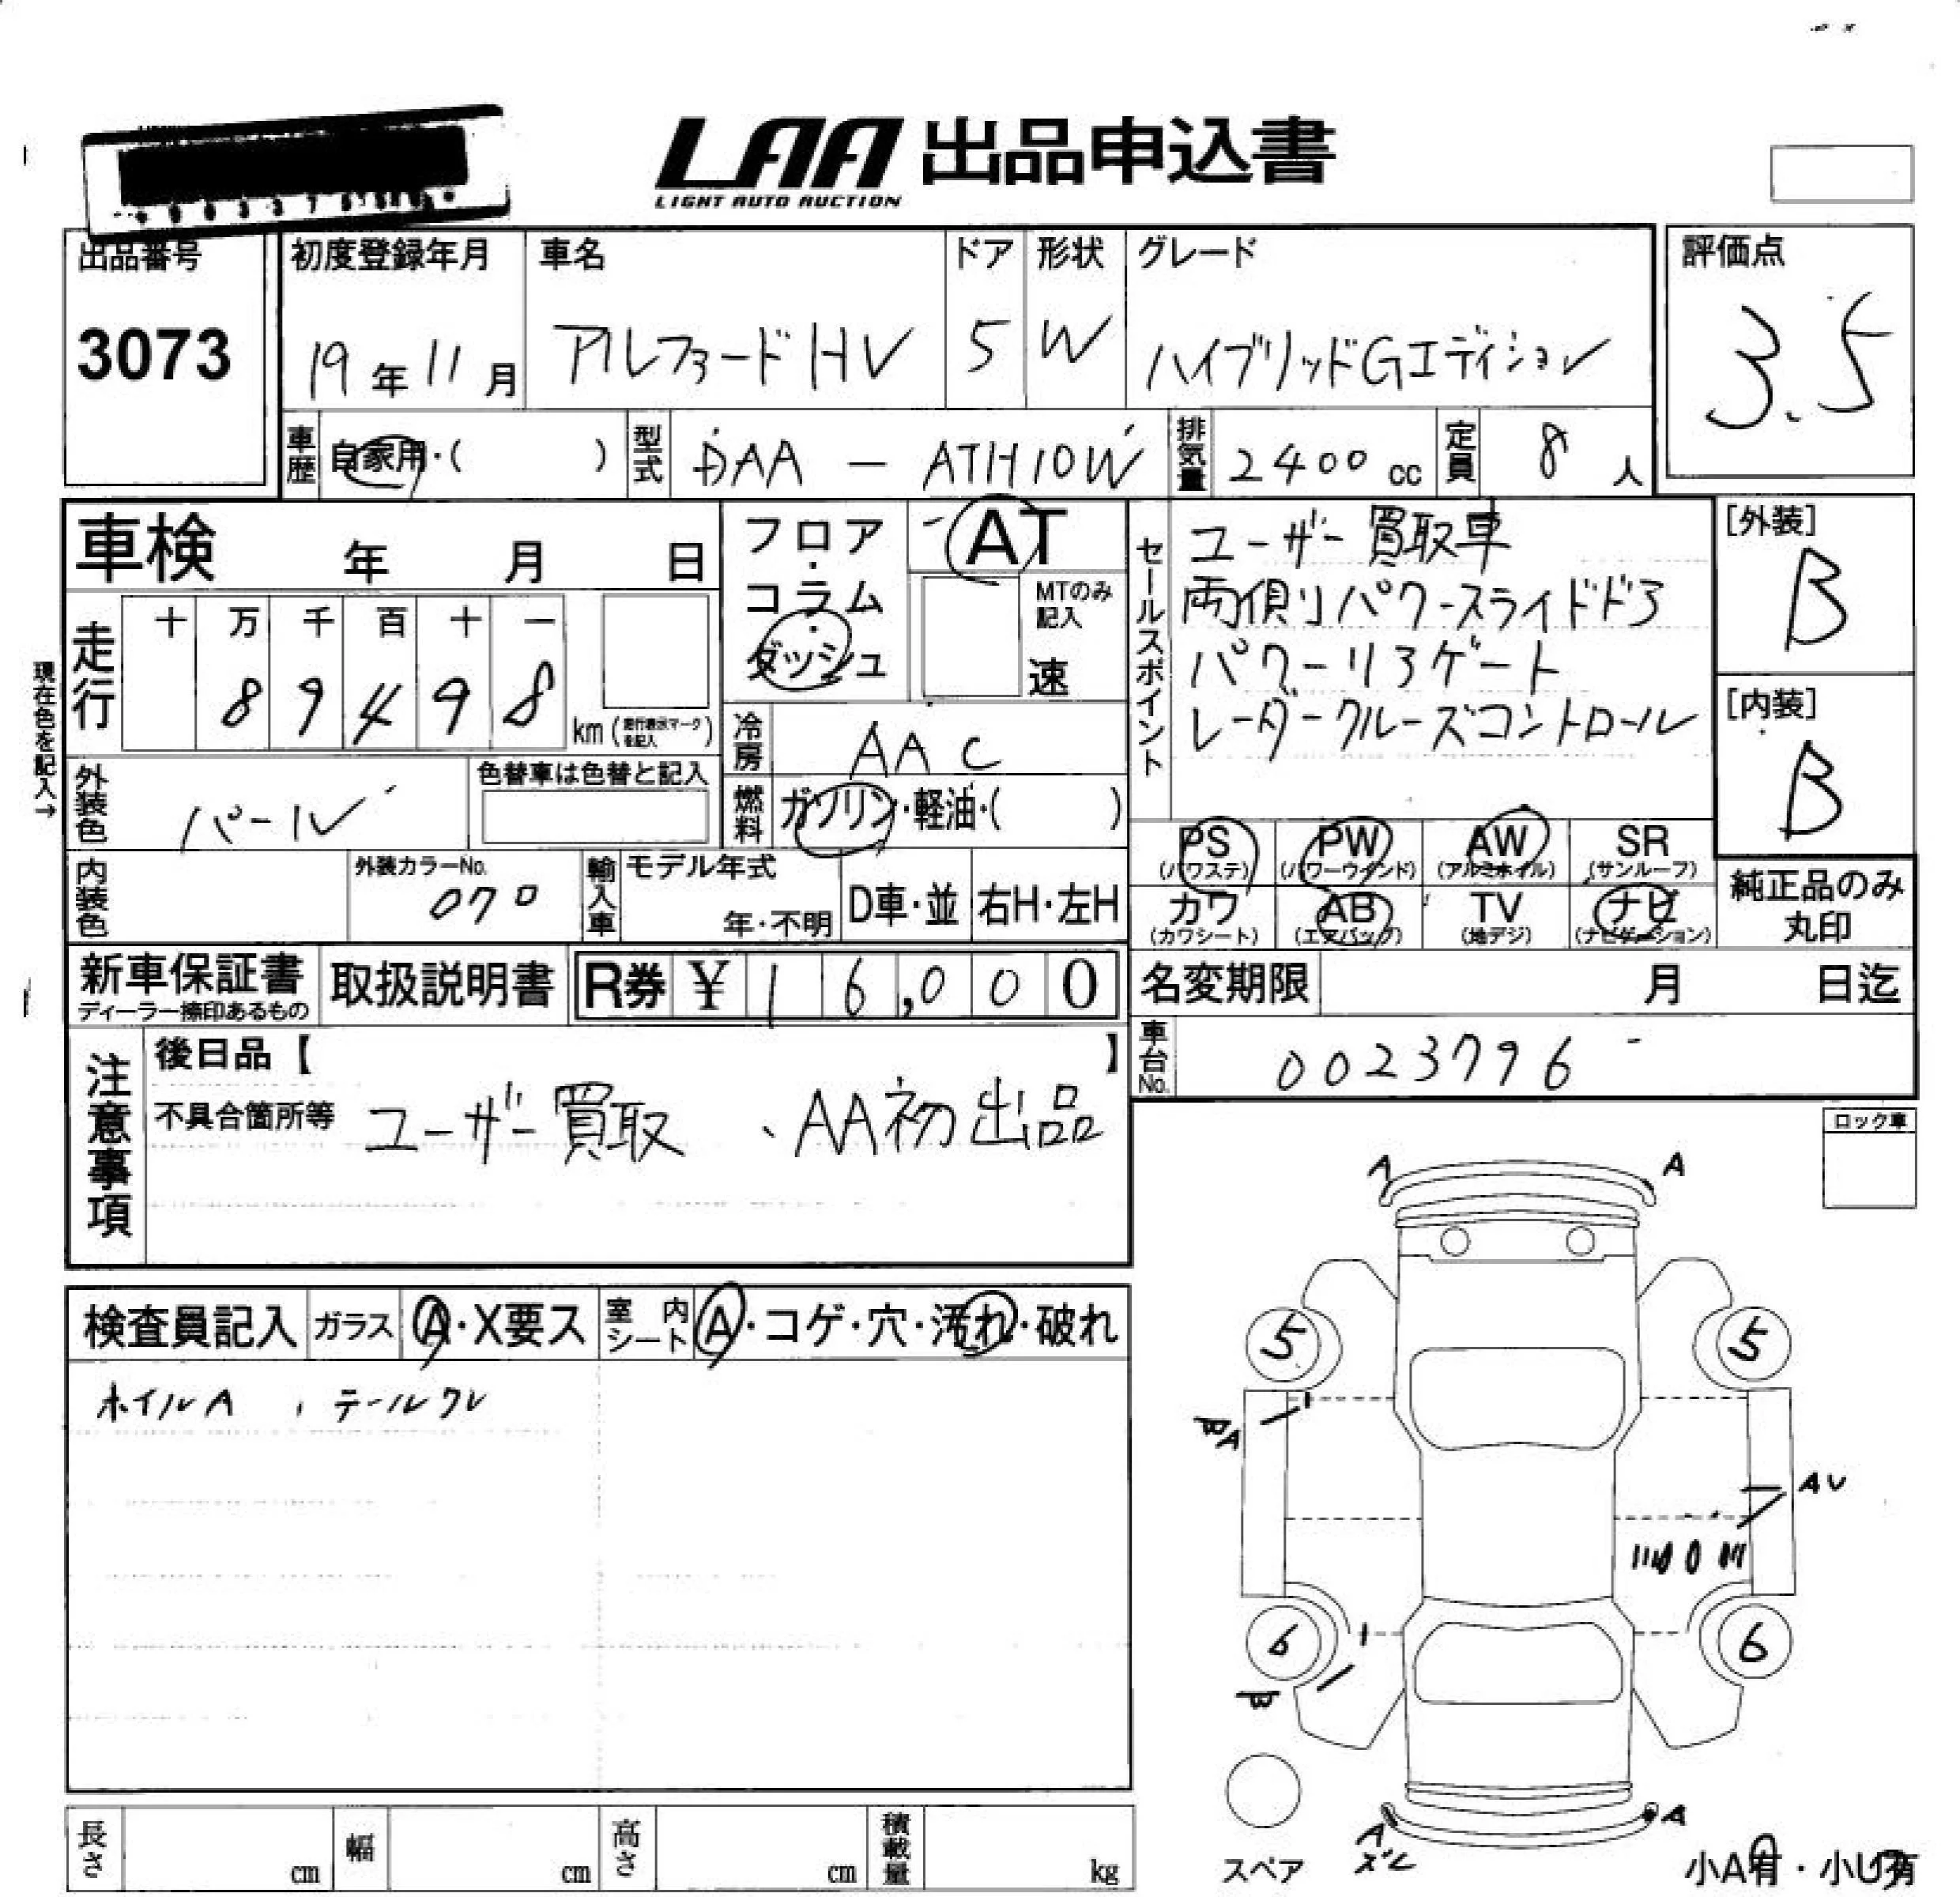 LAA 出品申込書
LIGHT AUTO AUCTION
出品番号
3073
初度登録年月
19年11月
車名
アルファードHV
ドア
5
形状
W
グレード
ハイブリッドGエディション
評価点
3.5
車歴
自家用・( )
型式
DAA - ATH10W
排気量
2400 cc
定員
8人
車検 年 月 日
フロア・コラム・ダッシュ
AT
MTのみ記入
速
セールスポイント
ユーザー買取車
両側パワースライドドア
パワーリアゲート
レーダークルーズコントロール
[外装]
B
[内装]
B
現在色を記入→
走行
十 万 千 百 十 一
8 9 4 9 8
km (走行表示マークを記入)
冷房
AAC
燃料
ガソリン・軽油・( )
外装色
パール
色替車は色替と記入
内装色
外装カラーNo.
070
輸入車
モデル年式
年・不明
D車・並
右H・左H
PS
(パワステ)
PW
(パワーウインド)
AW
(アルミホイル)
SR
(サンルーフ)
カワ
(カワシート)
AB
(エアバック)
TV
(地デジ)
ナビ
(ナビゲーション)
純正品のみ
丸印
新車保証書
ディーラー捺印あるもの
取扱説明書
R券 ¥16,000
名変期限 月 日迄
車台No.
0023796
注意事項
後日品【 】
不具合箇所等
ユーザー買取 、AA初出品
ロック車
検査員記入
ガラス
A・X要ス
室内シート
A・コゲ・穴・汚れ・破れ
ホイルA 、テールワレ
A
A
5
5
A
AU
6
6
A
A
ズレ
スペア
小A有・小U有
長さ cm
幅 cm
高さ cm
積載量 kg